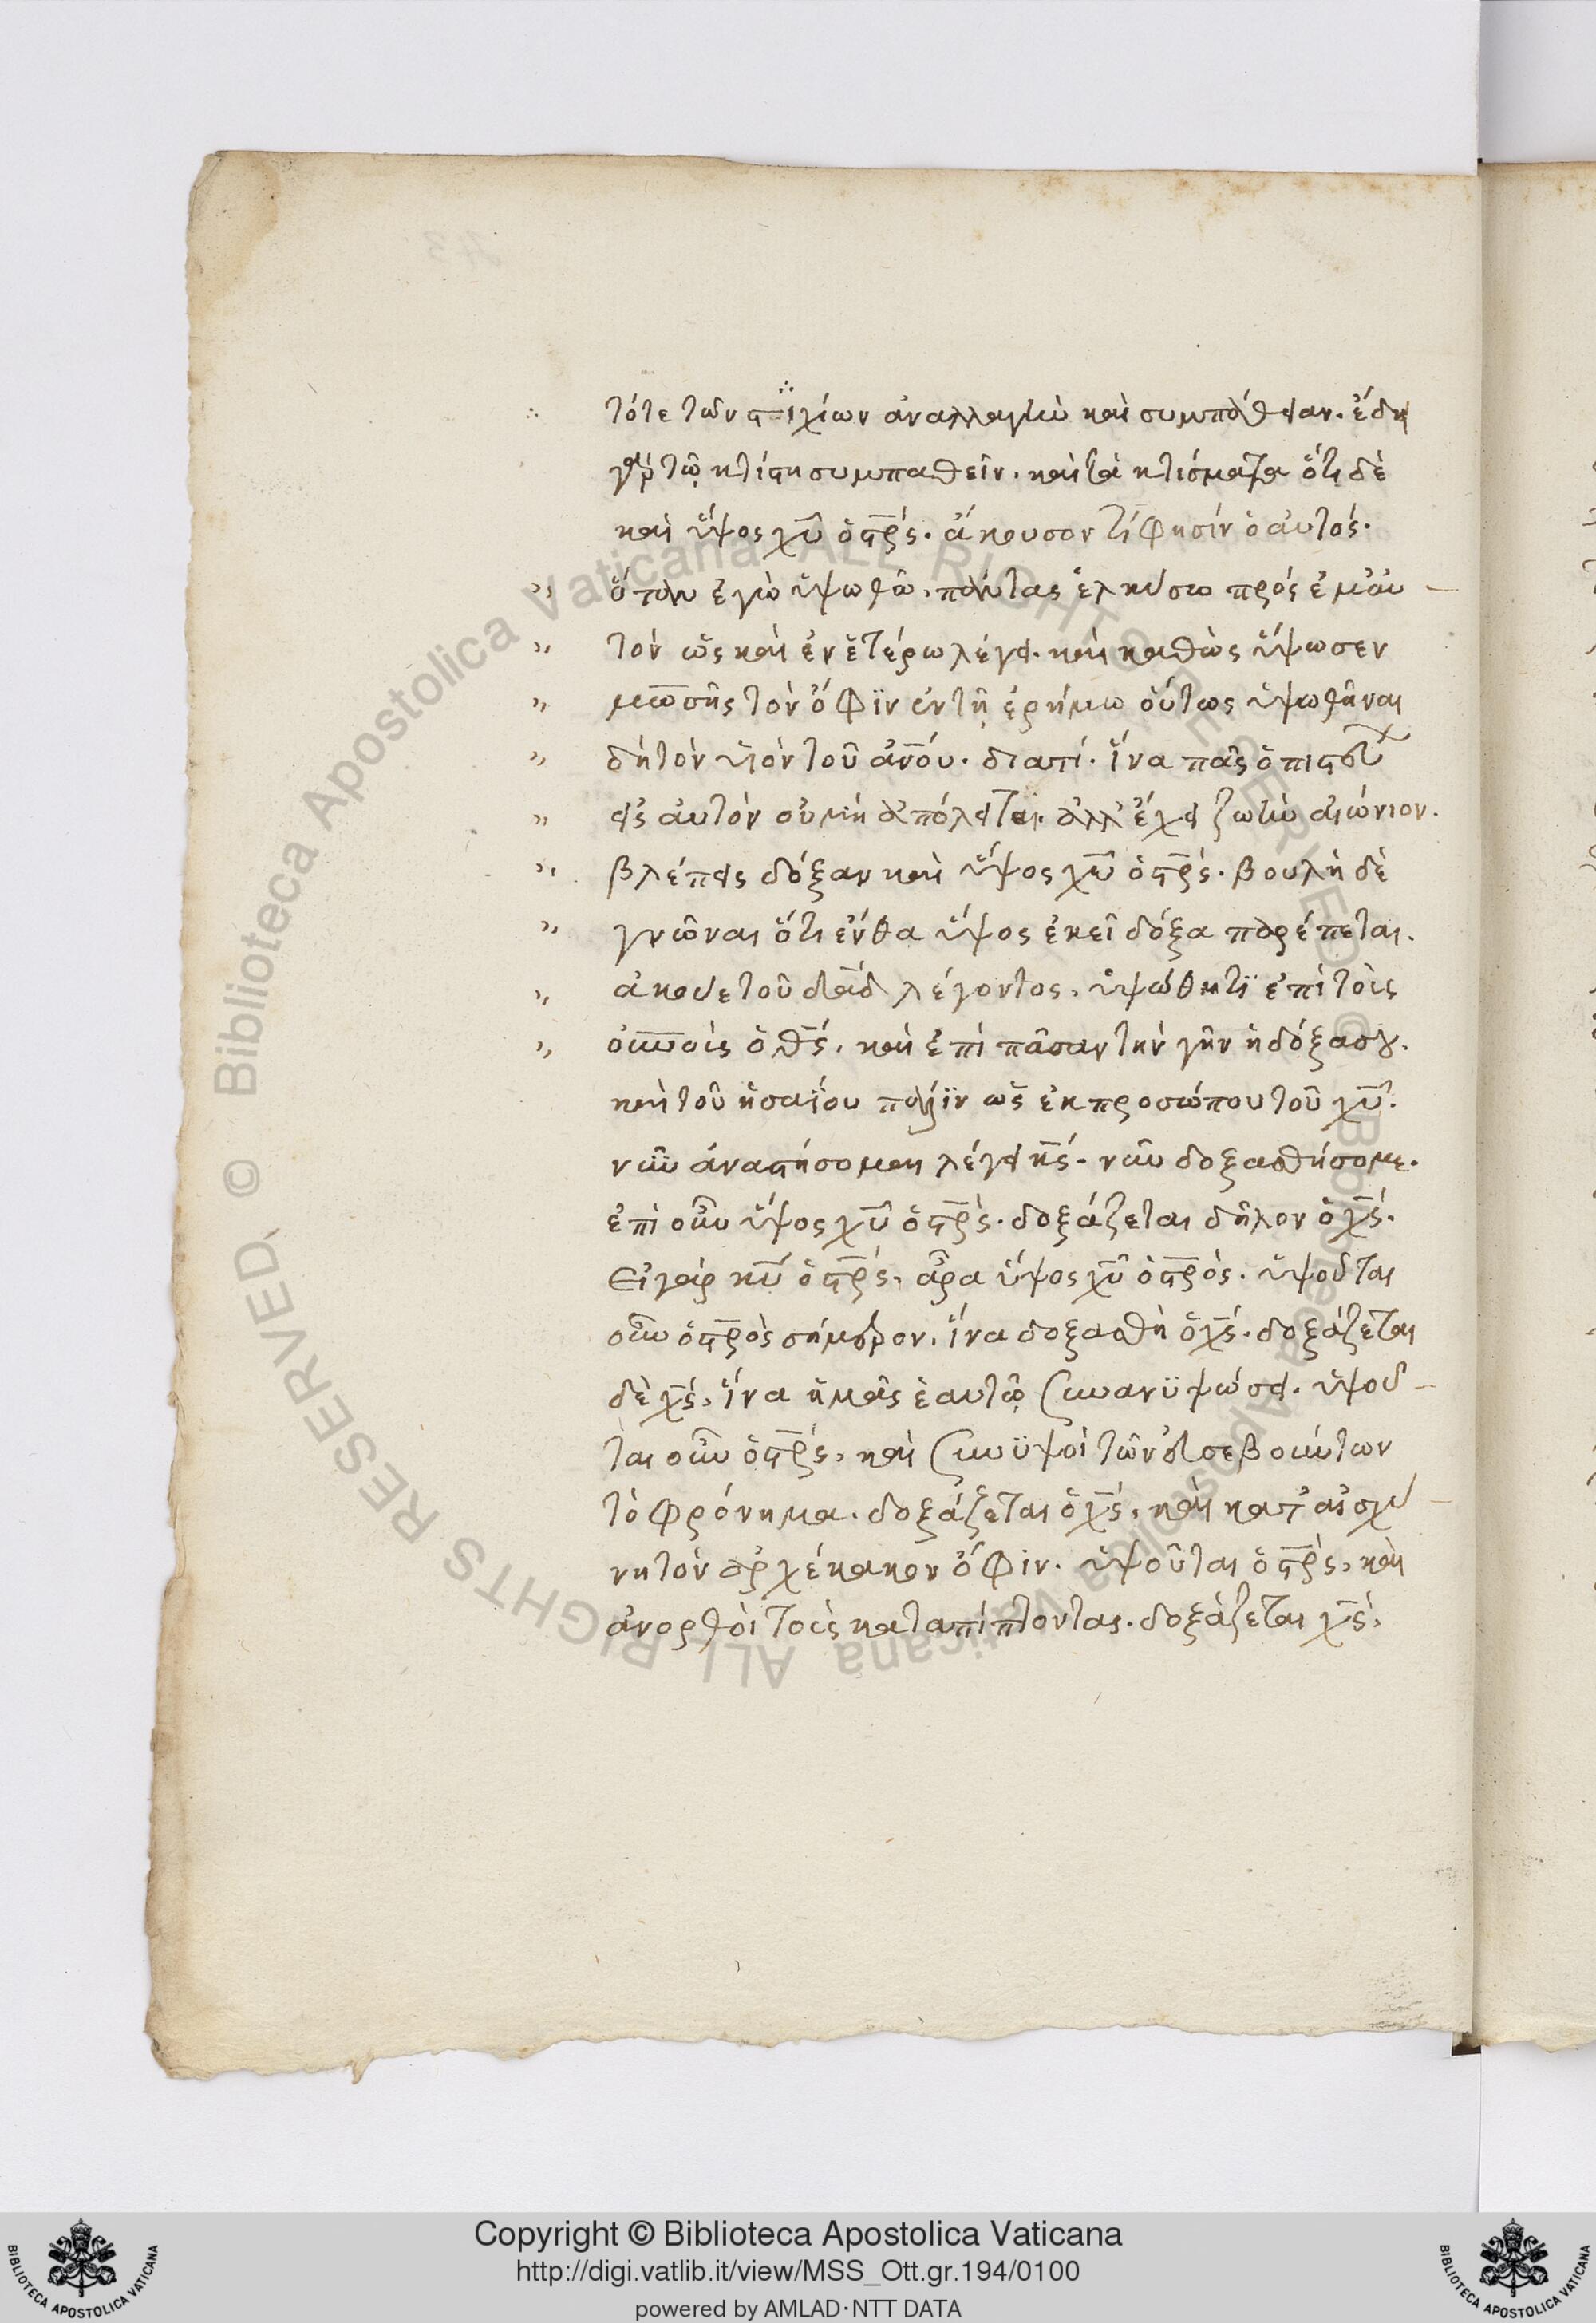 τότε τῶν στιχίων ἀναλλαγὴν καὶ συμπάθειαν. ἔδει
γὰρ τῶ κτίστη συμπαθεῖν. καὶ τὰ κτίσματα ὅτι δὲ
καὶ ὕψος χῦ ὁ στρς. ἄκουσον τί φησίν ὁ αὐτός.
ὅταν ἐγὼ ὑψωθῶ, πάντας ἑλκύσω πρός ἐμαυ
τόν ὡς καὶ ἐν ἑτέρω λέγει. καὶ καθὼς ὕψωσεν
μωσῆς τὸν ὄφϊν ἐν τῇ ἐρήμω οὕτως ὑψωθῆναι
δῆ τὸν υἱὸν τοῦ ἀνου. διατί. ἵνα πᾶς ὁ πιστεύων
εἰς αὐτὸν οὐ μὴ ἀπόλειται. ἀλλ' ἔχει ζωὴν αἰώνιον.
βλέπεις δόξαν καὶ ὕψος χῦ ὁ στρς. βουλὴ δὲ
γνῶναι ὅτι ἔνθα ὕψος ἐκεῖ δόξα παρέπεται.
ἄκουε τοῦ δαδ λέγοντος. ὑψώθητϊ ἐπὶ τοὺς
οὐνοὺς ὁ θς. καὶ ἐπὶ πᾶσαν τὴν γῆν ἡ δόξα σου.
καὶ τοῦ ἡσαΐου πάλϊν ὡς ἐκ προσώπου τοῦ χῦ.
νῦν ἀναστήσομαι λέγει κς. νῦν δοξασθήσομε.
ἐπὶ οὖν ὕψος χῦ ὁ στρς. δοξάζεται δῆλον ὁ χς.
Εἰ γὰρ κῦ ὁ στρς, ἆρα ὕψος χῦ ὁ στρος. ὑψοῦται
οὖν ὁ στρος σήμερον, ἵνα δοξασθῆ ὁ χς. δοξάζεται
δὲ χς, ἵνα ἡμᾶς ἑαυτῷ συνανϋψώσει. ὑψοῦ
ται οὖν ὁ στρς, καὶ συνϋψοῖ τῶν εὐσεβούντων
τὸ φρόνημα. δοξάζεται ὁ χς, καὶ καταισχύ
νη τὸν ἀρχέκακον ὄφιν. ὑψοῦται ὁ στρς, καὶ
ἀνορθοῖ τοὺς καταπίπτοντας. δοξάζεται χς,
Copyright © Biblioteca Apostolica Vaticana
http://digi.vatlib.it/view/MSS_Ott.gr.194/0100
powered by AMLAD·NTT DATA
BIBLIOTECA APOSTOLICA VATICANA
BIBLIOTECA APOSTOLICA VATICANA
© Biblioteca Apostolica Vaticana ALL RIGHTS RESERVED
© Biblioteca Apostolica Vaticana ALL RIGHTS RESERVED